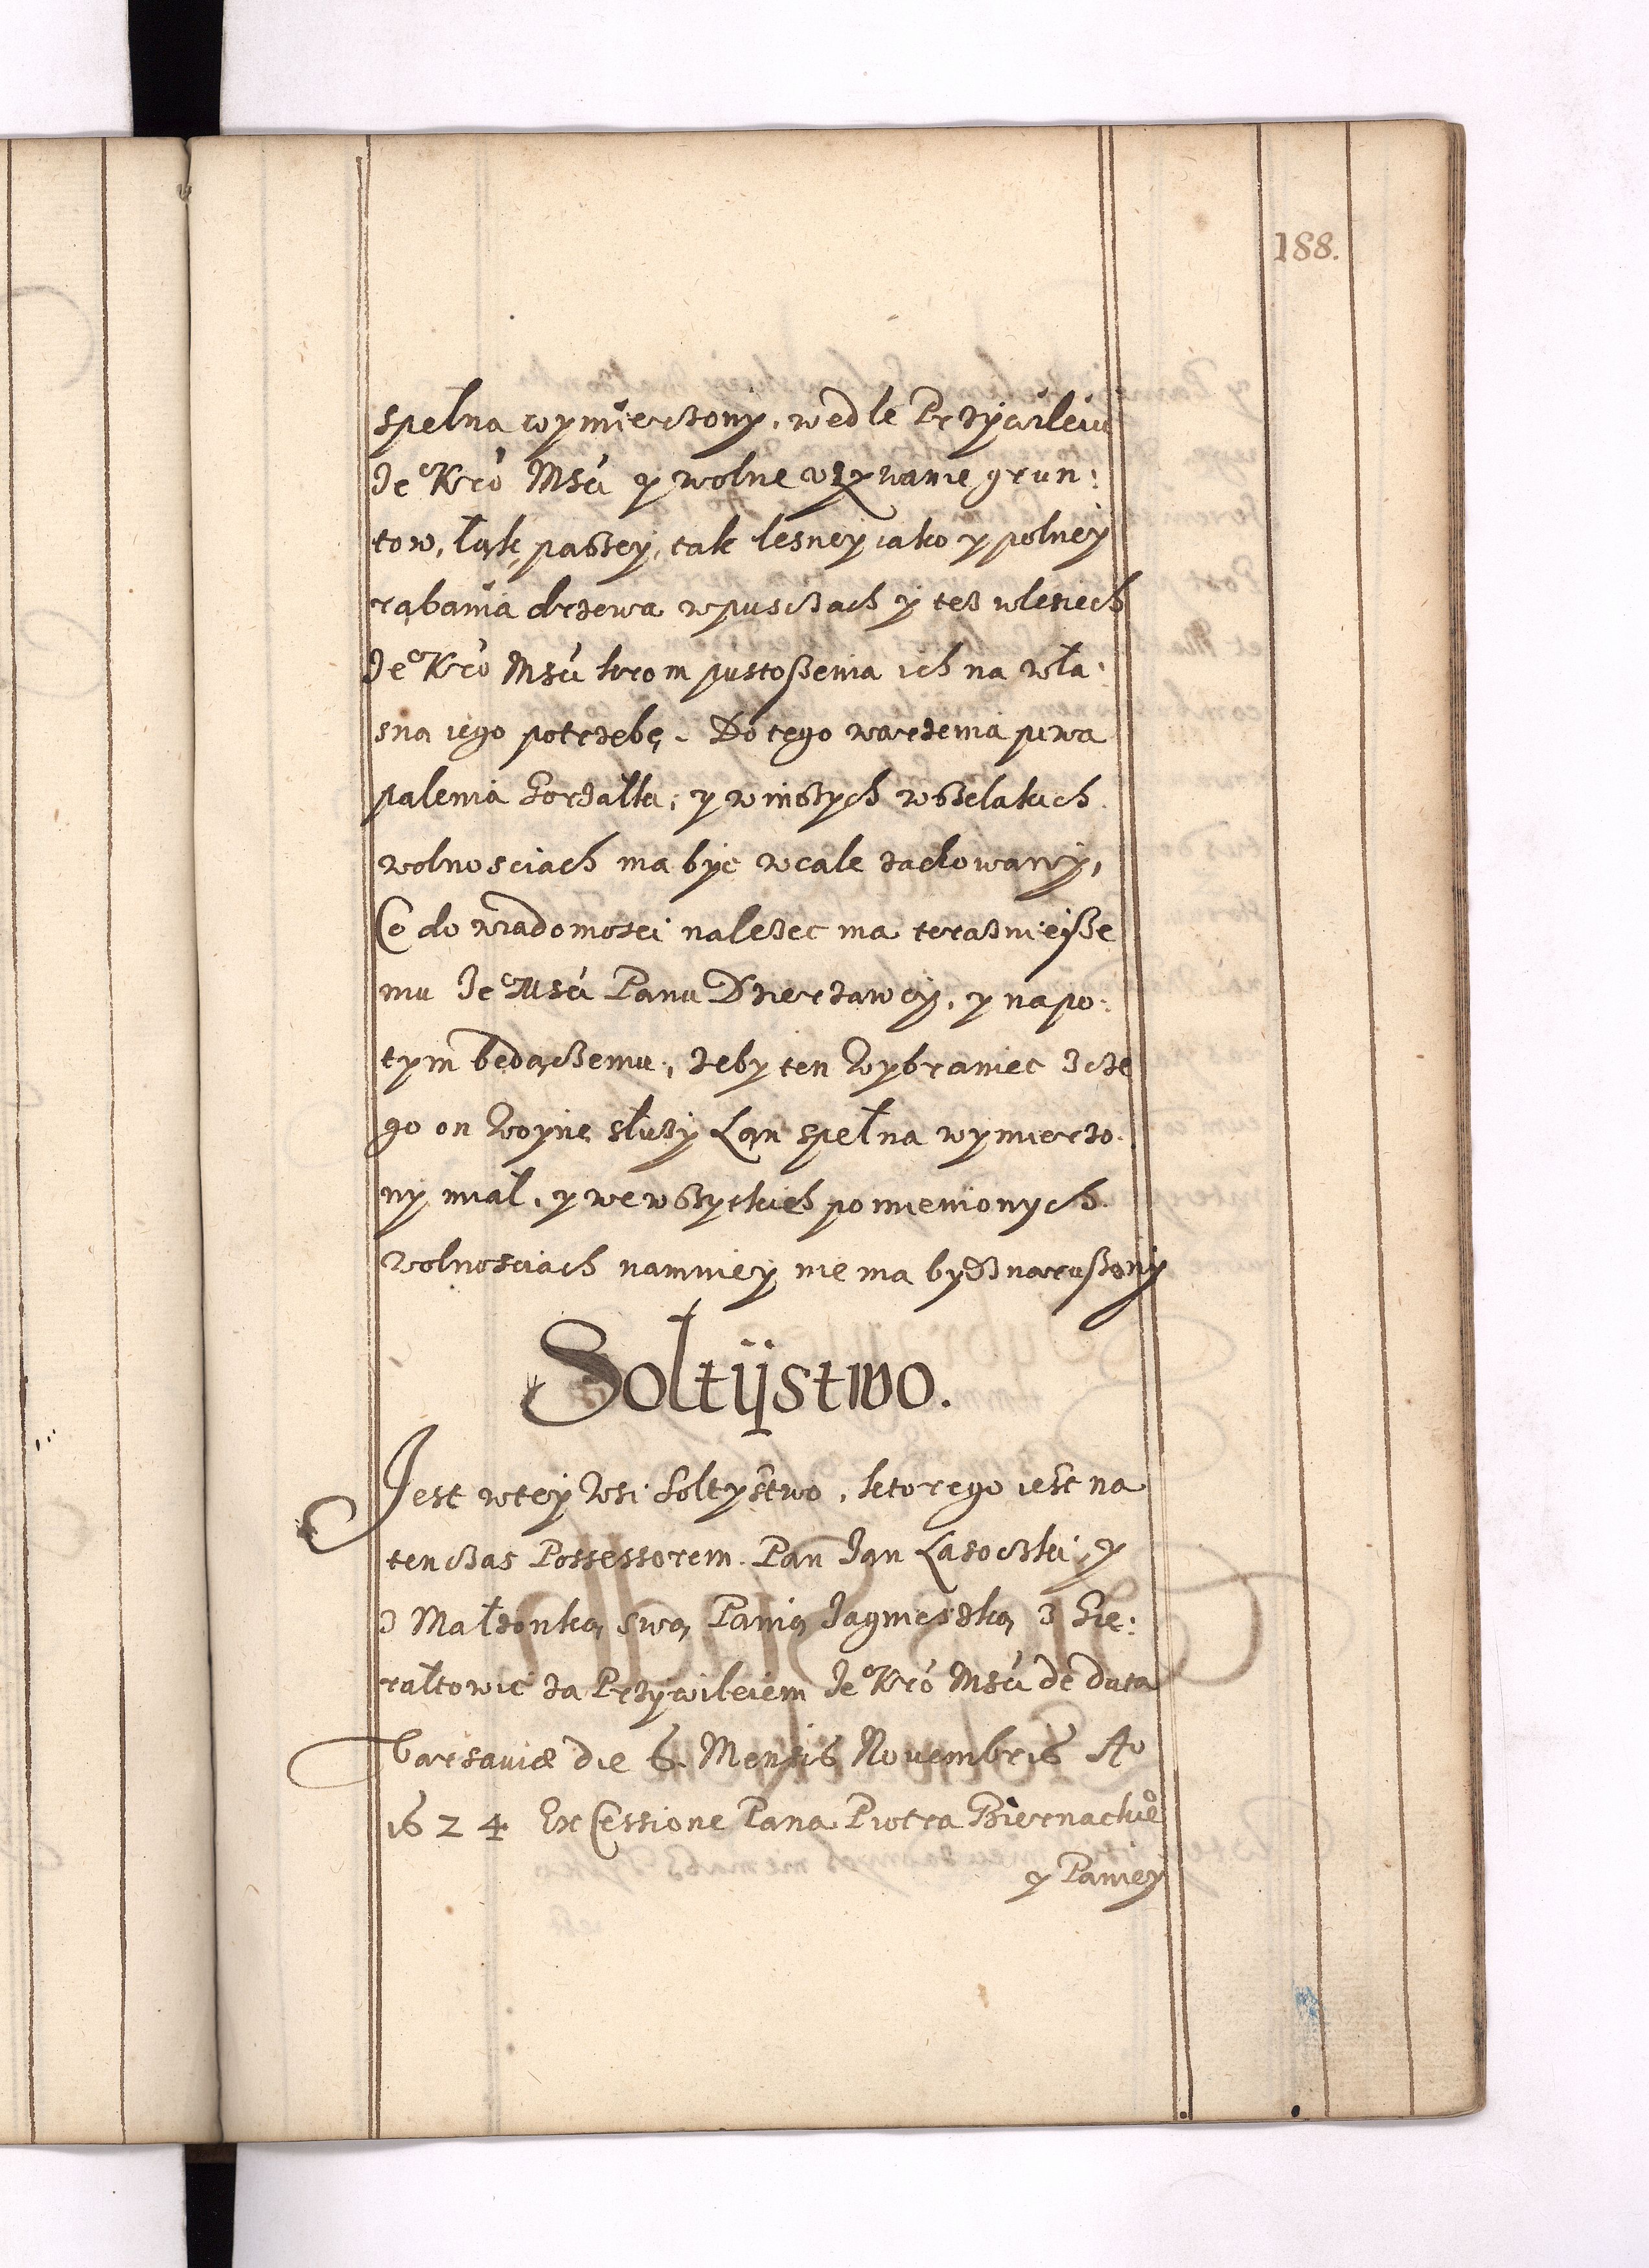 188.
spełna wymierzony, wedle Przywileiu
Je° Kro Msci y wolne vzywanie grun:
tow, łąk, paszey, tak lesney iako y polney
rąbania drzewa wpusczach y tez wlesiech
Je° Kro Msci krom pustoszenia ich na wła:
sną iego potrzebę. Do tego warzenia piwa
palenia Gorzałki, y winszych wszelakich
wolnosciach ma byc wcale zachowany,
Co do wiadomosci nalezec ma terazniejsze
mu Je° Msci Panu Dzierzawcy, y napo:
tym będączemu, zeby ten Wybraniec z cze
go on Woynę słuzy Łan spełna wymierzo:
ny miał, y wewszytkich pomienionych
wolnosciach namniey nie ma bydz naruszony
Soltijstwo.
Jest wtey Wsi Soltystwo, ktorego iest na
tenczas Possessorem Pan Jan Lasoczki, y
z Małzonką swą Panią Jagnieszką z Gie:
rałtowic za Przywileiem Je° Kro Msci de data
Varsauiæ die 6. Mensis Nouembris A°
1624 Ex Cessione Pana Piotra Biernackie°
y Paniey